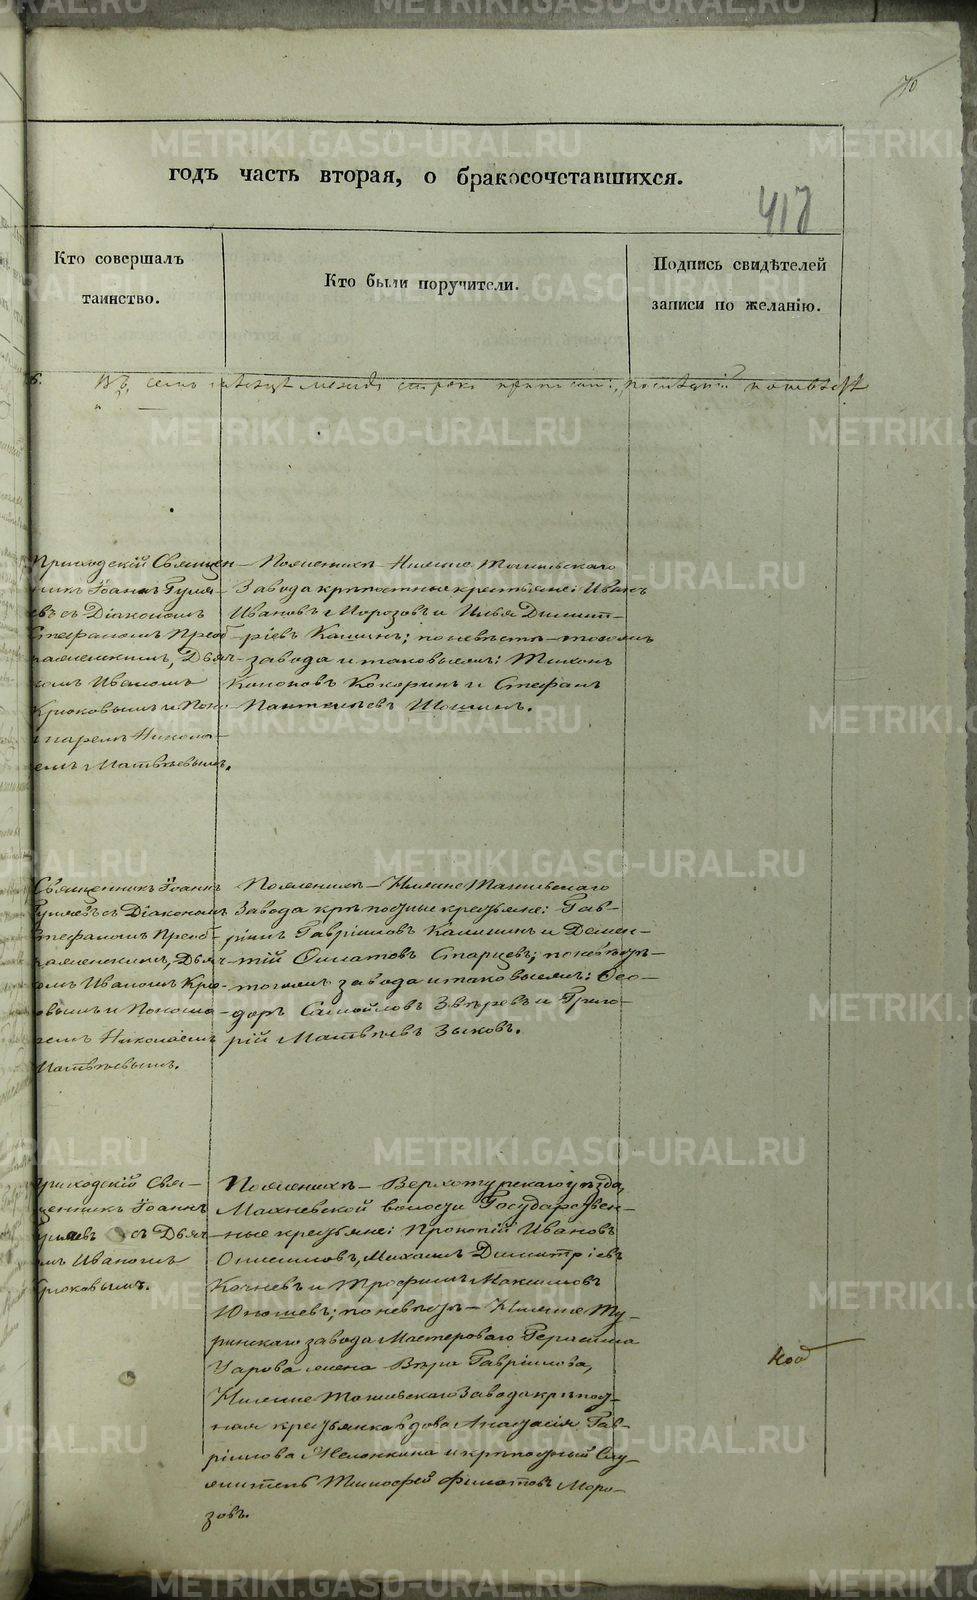 70
годъ часть вторая, о бракосочетавшихся.
417
Кто совершалъ
таинство.
Кто были поручители.
Подпись свидѣтелей
записи по желанію.
Въ семъ между строкъ
Приходскій Священ-
никъ Іоаннъ Гуля-
евъ съ Діакономъ
Стефаномъ Преоб-
раженскимъ, Дьяч-
комъ Иваномъ
Крюковымъ и Поно-
маремъ Никола-
емъ Матвѣевымъ.
По женихѣ – Нижне Тагильскаго
Завода крѣпостные крестьяне: Иванъ
Ивановъ Морозовъ и Илья Димит-
ріевъ Капинъ; по невѣстѣ – тогожъ
завода и таковыежъ: Тихонъ
Кононовъ Кокоринъ и Стефанъ
Пантелѣевъ Шошинъ.
Священникъ Іоаннъ
Гуляевъ съ Діакономъ
Стефаномъ Преоб-
раженскимъ, Дьяч-
комъ Иваномъ Крю-
ковымъ и Понома-
ремъ Николаемъ
Матвѣевымъ.
По женихѣ – Нижне Тагильскаго
Завода крѣпостные крестьяне: Гав-
ріилъ Гавріиловъ Калининъ и Демен-
тій Филатовъ Старцевъ; по невѣстѣ –
тогожъ завода и таковыежъ: Ѳео-
доръ Самойловъ Звѣревъ и Григо-
рій Матвѣевъ Зыковъ.
Приходскій Свя-
щенникъ Іоаннъ
Гуляевъ съ Дьяч-
комъ Иваномъ
Крюковымъ.
По женихѣ – Верхотурскаго уѣзда,
Махневской волости Государствен-
ные крестьяне: Прокопій Ивановъ
Онисимовъ, Михаилъ Димитріевъ
Кочневъ и Трофимъ Максимовъ
Юношевъ; по невѣстѣ – Нижне Ту-
ринскаго завода Мастероваго Герасима
Уарова жена Вѣра Гавріилова,
Нижне Тагильскаго Завода крѣпост-
ная крестьянка вдова Анастасія Гав-
ріилова Мелонкина и крѣпостный Слу-
житель Тимофей Филатовъ Моро-
зовъ.
METRIKI.GASO-URAL.RU